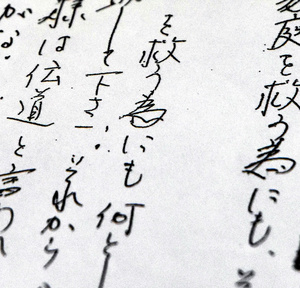 庭を救う為にも、
を救う為にも何とし
して下さい。それから
様は伝道と言わ
がな